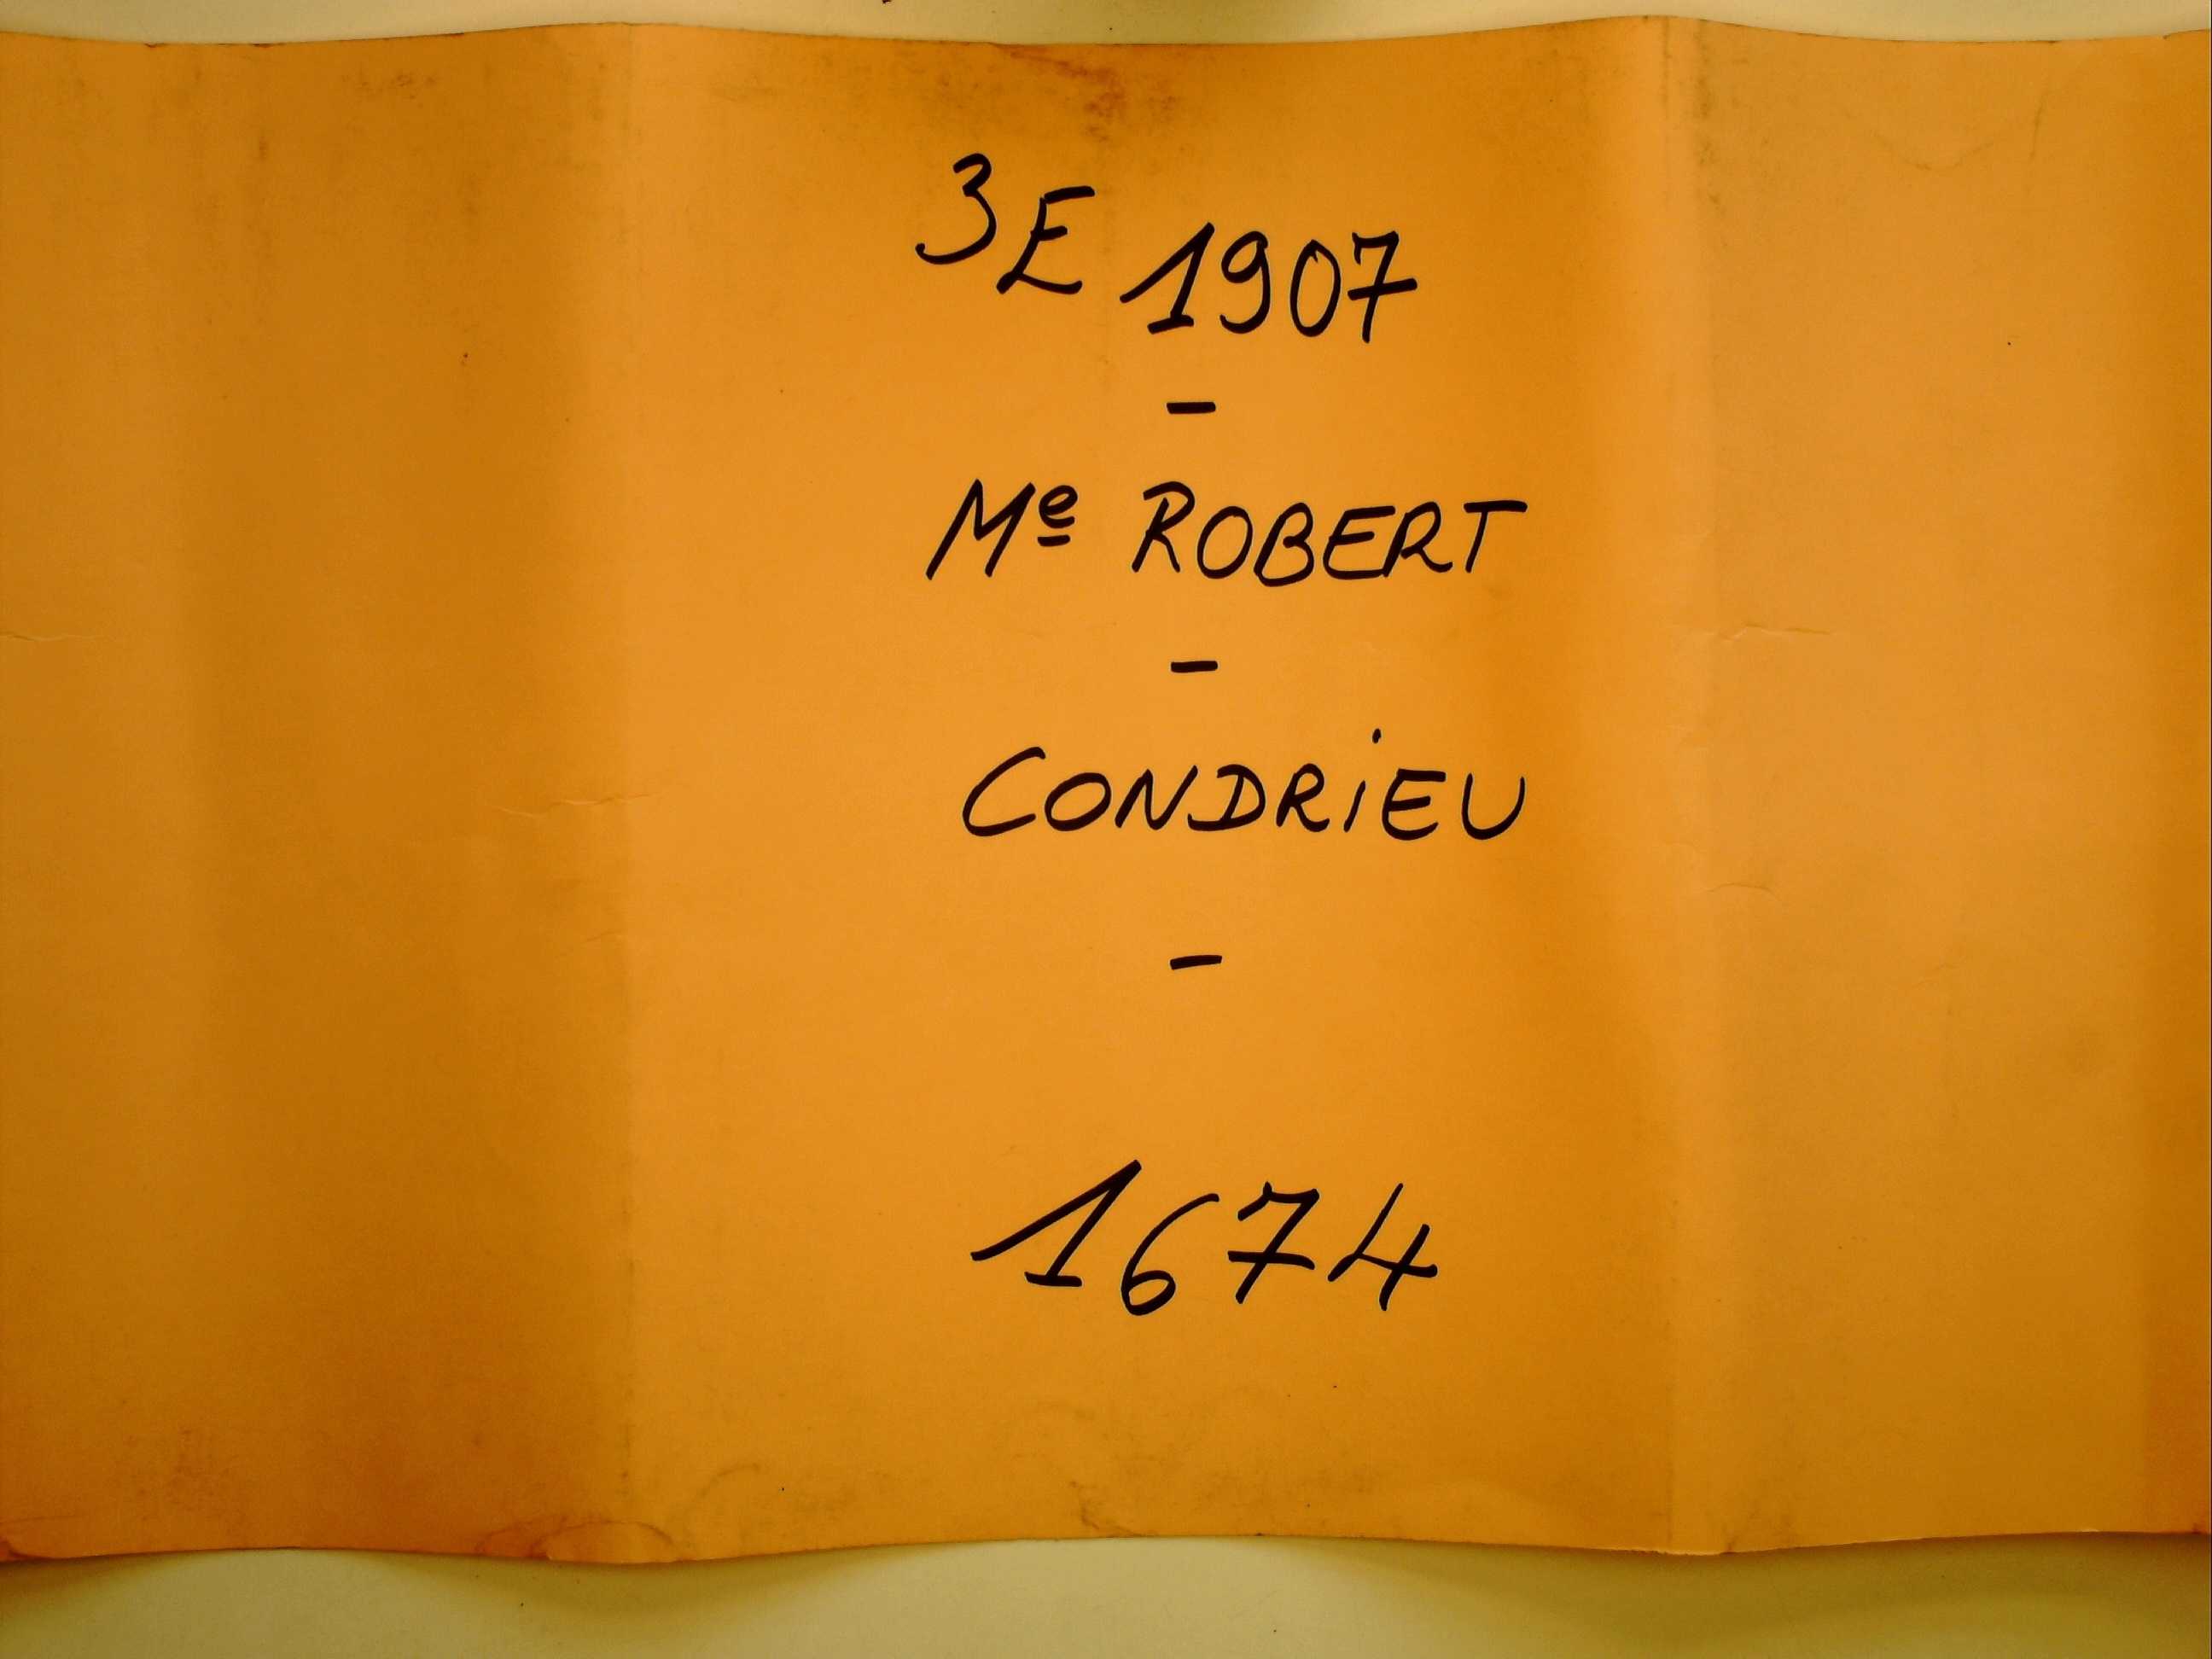 3E 1907
-
Me ROBERT
-
CONDRiEU
-
1674